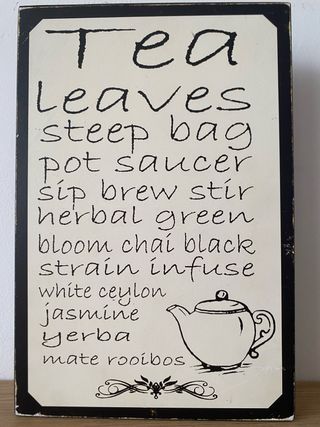 Tea
leaves
steep bag
pot saucer
sip brew stir
herbal green
bloom chai black
strain infuse
white ceylon
jasmine
yerba
mate rooibos